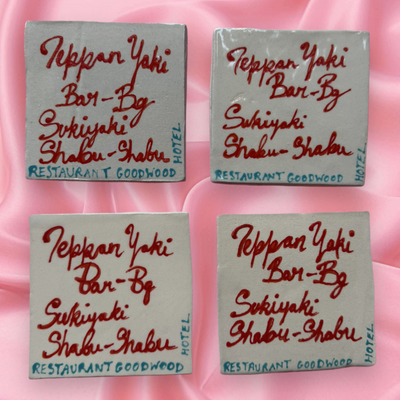 Teppan Yaki
Bar-Bg
Sukiyaki
Shabu-Shabu
RESTAURANT GOODWOOD
HOTEL
Teppan Yaki
Bar-Bg
Sukiyaki
Shabu-Shabu
RESTAURANT GOODWOOD
HOTEL
Teppan Yaki
Bar-Bg
Sukiyaki
Shabu-Shabu
RESTAURANT GOODWOOD
HOTEL
Teppan Yaki
Bar-Bg
Sukiyaki
Shabu-Shabu
RESTAURANT GOODWOOD
HOTEL